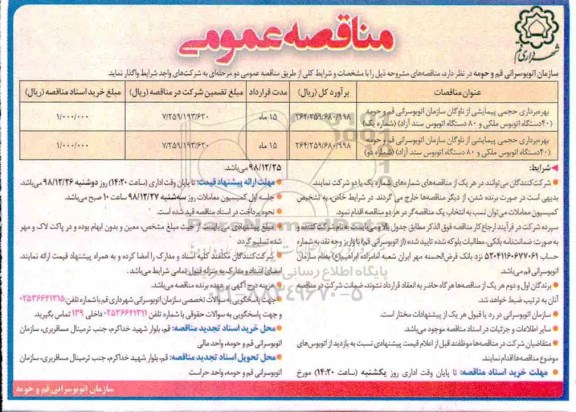 مناقصه عمومی
شهرداری قم
سازمان اتوبوسرانی قم و حومه در نظر دارد، مناقصه‌های مشروحه ذیل را با مشخصات و شرایط کلی از طریق مناقصه عمومی دو مرحله‌ای به شرکت‌های واجد شرایط واگذار نماید.
عنوان مناقصات
برآورد کل (ریال)
مدت قرارداد
مبلغ تضمین شرکت در مناقصه (ریال)
مبلغ خرید اسناد مناقصه (ریال)
بهره‌برداری حجمی پیمایشی از ناوگان سازمان اتوبوسرانی قم و حومه
(۴۰دستگاه اتوبوس ملکی و ۸۰ دستگاه اتوبوس سند آزاد) (شماره یک)
۲۶۴/۲۵۹/۶۸۰/۹۹۸
۱۵ ماه
۷/۲۵۹/۱۹۳/۶۲۰
۱/۰۰۰/۰۰۰
بهره‌برداری حجمی پیمایشی از ناوگان سازمان اتوبوسرانی قم و حومه
(۴۰دستگاه اتوبوس ملکی و ۸۰ دستگاه اتوبوس سند آزاد) (شماره دو)
۲۶۴/۲۵۹/۶۸۰/۹۹۸
۱۵ ماه
۷/۲۵۹/۱۹۳/۶۲۰
۱/۰۰۰/۰۰۰
شرایط:
شرکت‌کنندگان می‌توانند در هر یک از مناقصه‌های شماره‌های شماره یک یا دو شرکت نمایند.
بدیهی است در صورت برنده شدن، از دیگر مناقصه‌ها خارج می گردند. در شرایط خاص، به تشخیص
کمیسیون معاملات می‌توان نسبت به انتخاب یک مناقصه‌گر در هر دو مناقصه اقدام نمود.
سپرده شرکت در فرآیند ارجاع کار مناقصه فوق الذکر مطابق جدول بالا می‌باشد،
به صورت ضمانتنامه بانکی، مطالبات بلوکه شده تایید شده (از اتوبوسرانی قم) یا واریز وجه نقد به شماره
حساب ۵۲۰۴۱۱۶۰۶۷۷۰۶۱ نزد بانک قرض‌الحسنه مهر ایران شعبه بنام سازمان
اتوبوسرانی قم می‌باشد.
برندگان اول و دوم هر یک از مناقصه‌ها هرگاه حاضر به انعقاد قرارداد نشوند، ضمانت شرکت در مناقصه
آنان به ترتیب ضبط خواهد شد.
سازمان اتوبوسرانی در رد یا قبول هر یک از پیشنهادات مختار است.
سایر اطلاعات و جزئیات در اسناد مناقصه موجود می‌باشد.
متقاضیان شرکت در مناقصه‌ها موظفند قبل از اعلام قیمت پیشنهادی نسبت به بازدید از اتوبوس‌های
موضوع مناقصه‌ها اقدام نمایند.
مهلت خرید اسناد مناقصه: تا پایان وقت اداری روز یکشنبه (ساعت ۱۴:۲۰) مورخ
۹۸/۱۲/۲۵ می‌باشد.
مهلت ارائه پیشنهاد قیمت: تا پایان وقت اداری (ساعت ۱۴:۲۰) روز دوشنبه ۹۸/۱۲/۲۶ می‌باشد.
جلسه اول کمیسیون معاملات روز سه‌شنبه ۹۸/۱۲/۲۷ ساعت ۱۰ صبح می‌باشد.
نحوه پرداخت در اسناد مناقصه قید شده است.
مبلغ پیشنهادی می‌بایست از حیث مبلغ مشخص، معین و بدون ابهام بوده و در پاکت لاک و مهر
شده تسلیم گردد.
شرکت‌کنندگان مکلفند کلیه اسناد و مدارک را امضا کرده و به همراه پیشنهاد قیمت ارائه نمایند.
امضای اسناد و مدارک به منزله قبول تمامی شرایط می‌باشد.
هزینه درج آگهی بر عهده برنده مناقصه می‌باشد.
جهت پاسخگویی به سؤالات تخصصی سازمان اتوبوسرانی شهرداری قم با شماره تلفن: ۰۲۵۳۶۶۴۱۳۱۵
و جهت پاسخگویی به سؤالات حقوقی با شماره تلفن: ۰۲۵۳۶۶۴۱۳۱۱ داخلی ۱۳۹ تماس بگیرید.
محل خرید اسناد تجدید مناقصه: قم، بلوار شهید خداکرم، جنب ترمینال مسافربری، سازمان
اتوبوسرانی قم و حومه، واحد مالی
محل تحویل اسناد تجدید مناقصه: قم، بلوار شهید خداکرم، جنب ترمینال مسافربری، سازمان
اتوبوسرانی قم و حومه، واحد حراست
سازمان اتوبوسرانی قم و حومه